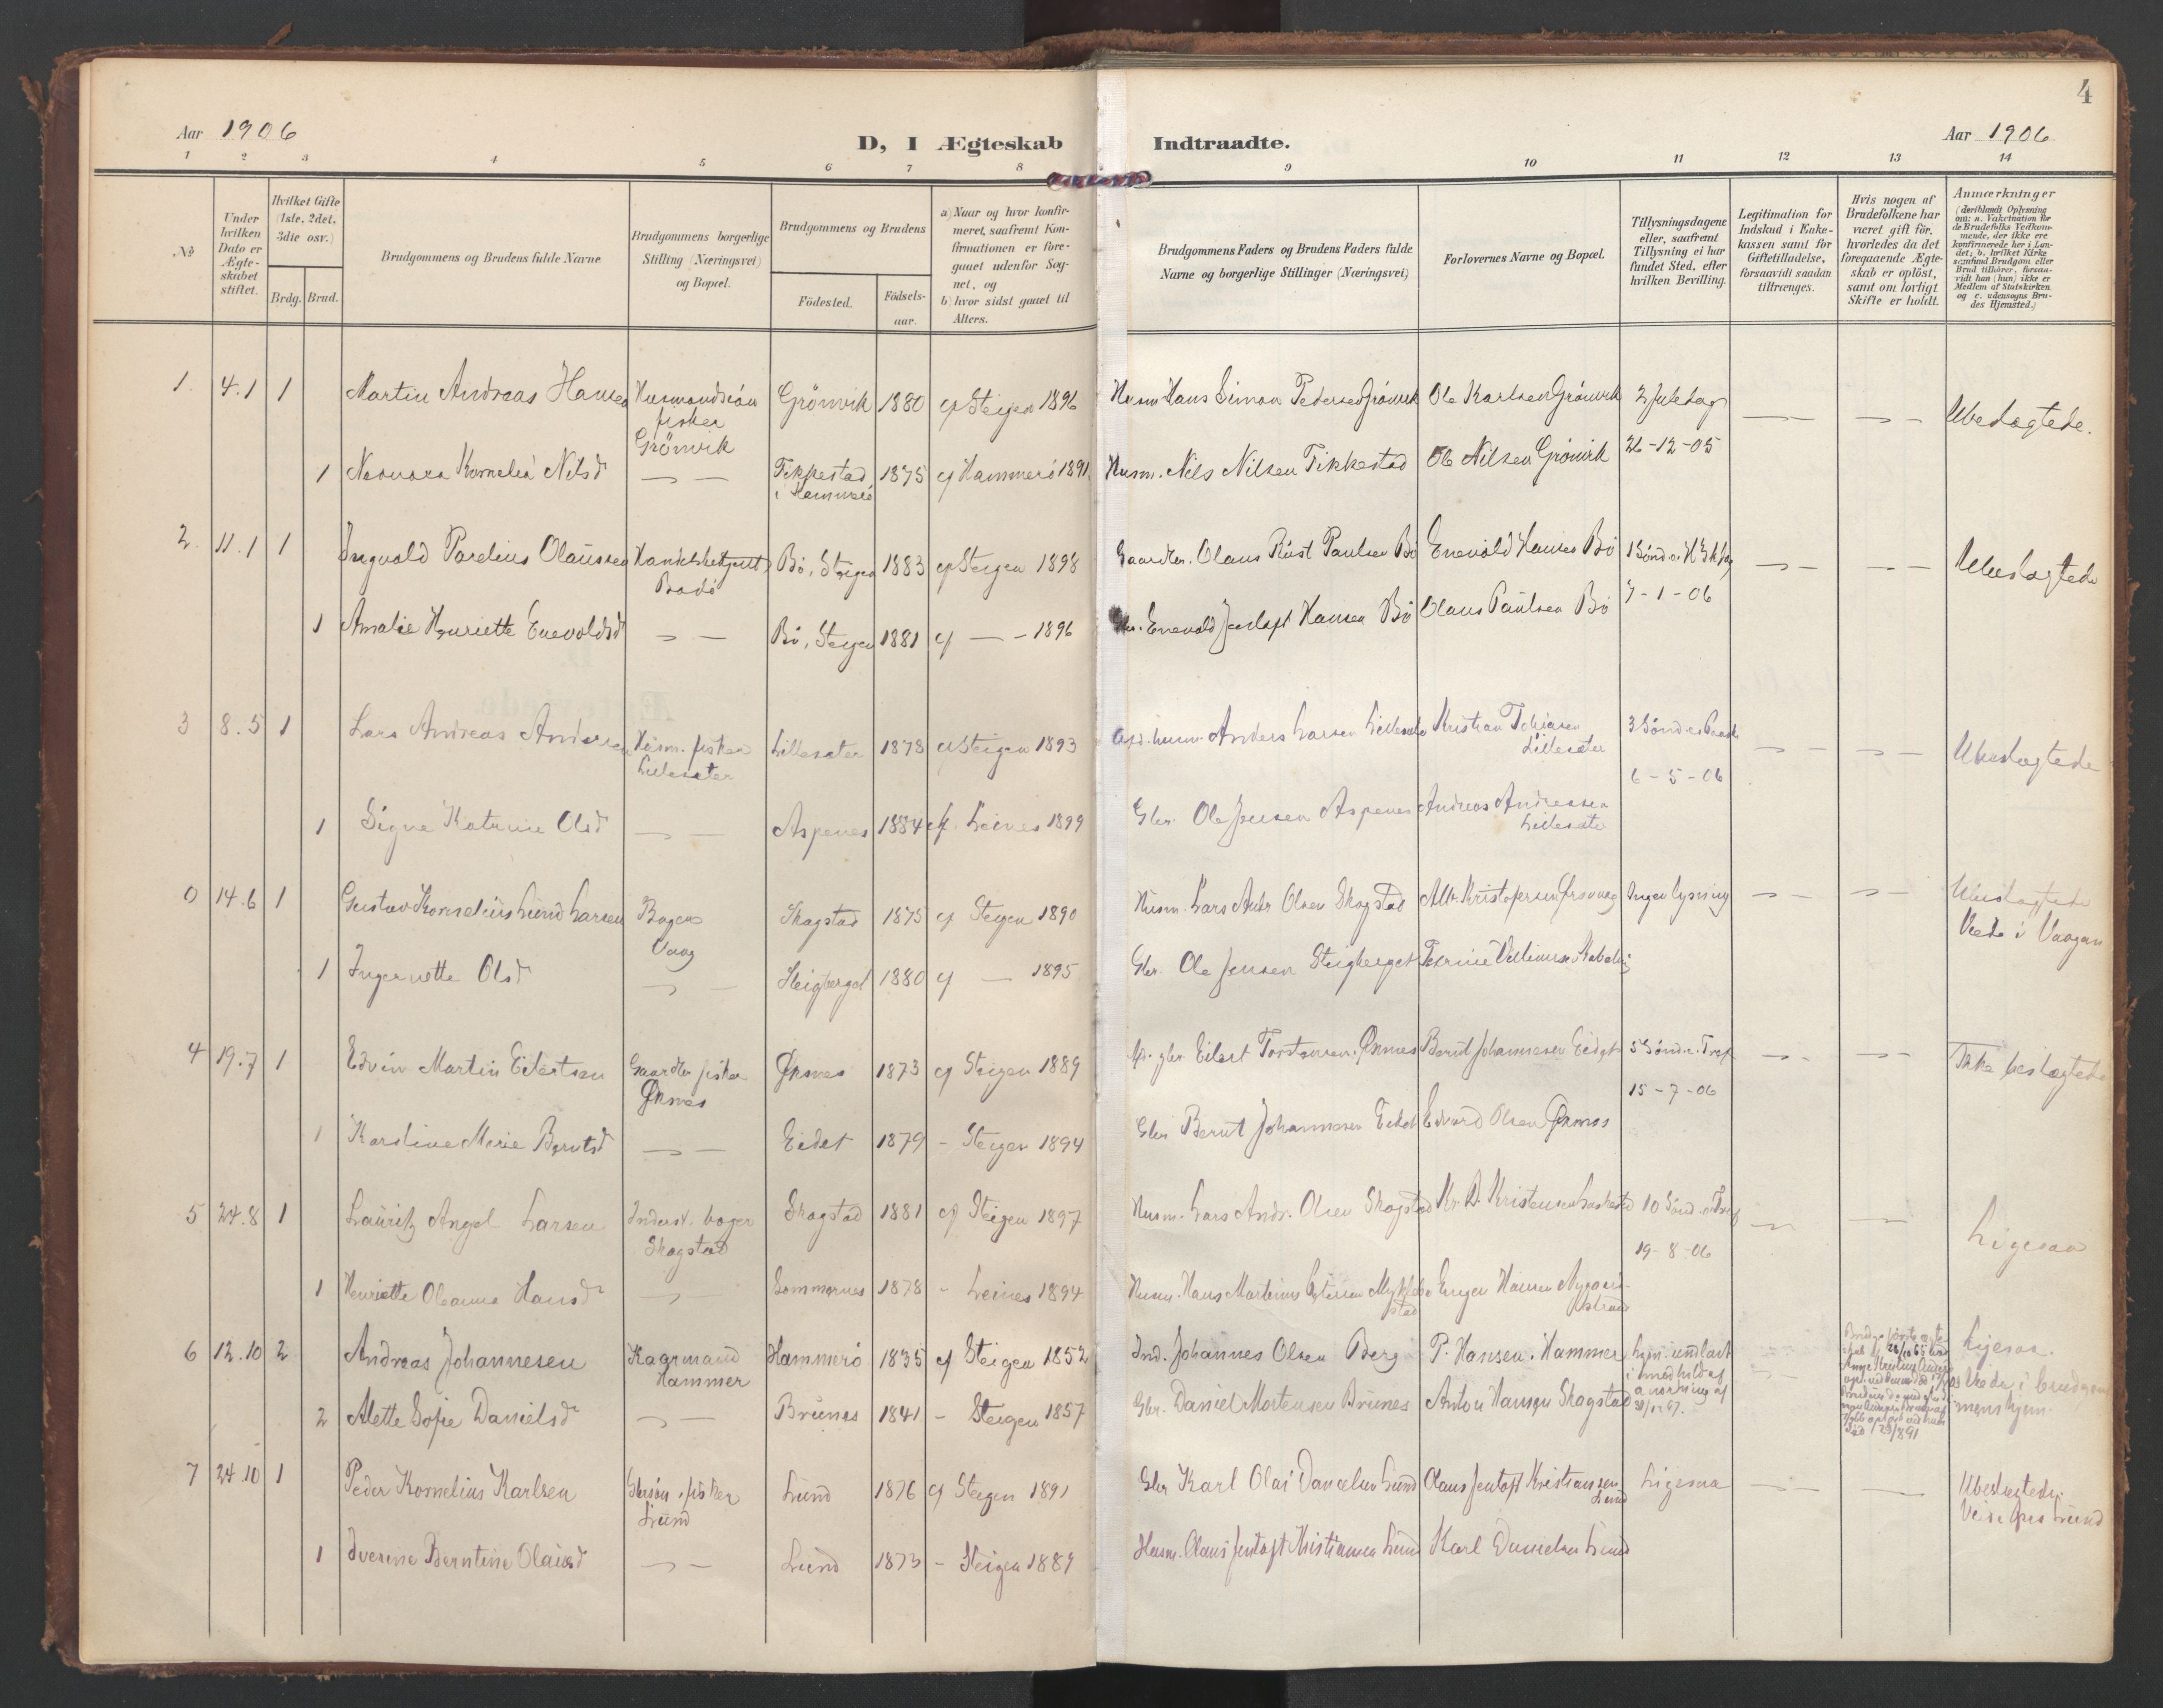 4
Aar 1906
D, I Ægteskab Indtraadte.
Aar 1906
1 2 3 4 5 6 7 8 9 10 11 12 13 14
No
Under hvilken Dato er Ægteskabet stiftet.
Hvilket Gifte (1ste, 2det, 3die osv.)
Brdg. Brud.
Brudgommens og Brudens fulde Navne
Brudgommens borgerlige Stilling (Næringsvei) og Bopæl.
Brudgommens og Brudens
Födested. Födsels-aar.
a) Naar og hvor konfirmeret, saafremt Konfirmationen er foregaaet udenfor Sognet, og
b) hvor sidst gaaet til Alters.
Brudgommens Faders og Brudens Faders fulde Navne og borgerlige Stillinger (Næringsvei)
Forlovernes Navne og Bopæl.
Tillysningsdagene eller, saafremt Tillysning ei har fundet Sted, efter hvilken Bevilling.
Legitimation for Indskud i Enkekassen samt for Giftetilladelse, forsaavidt saadan tiltrænges.
Hvis nogen af Brudefolkene har været gift för, hvorledes da det foregaaende Ægteskab er oplöst, samt om lovligt Skifte er holdt.
Anmærkninger (deriblandt Oplysning om: a. Vakcination for de Brudefolks Vedkommende, der ikke ere konfirmerede her i Landet; b. hvilket Kirkesamfund Brudgom eller Brud tilhörer, forsaavidt han (hun) ikke er Medlem af Statskirken og c. udensogns Brudes Hjemsted.)
1. 4.1 1 Martin Andreas Hansen Husmandssön fisker Grönvik Grönvik 1880 cf Steigen 1896 Husm Hans Simon Pedersen Grönvik Ole Karlsen Grönvik 2 Juledag — — — — Ubeslægtede.
1 Kornelia Nilsd — — Tikkestad i Hammerö 1875 cf Hammerö 1891. Husm. Nils Nilsen Tikkestad Ole Nilsen Grönvik 26-12-05
2. 11.1 1 Ingvald Parelius Olaussen Handelsbetjent, Bodö Bö, Steigen 1883 cf Steigen 1898 Gaardbr. Olaus Röst Paulsen Bö Enevold Hansen Bö 1 Sönd. e. H 3 K Dag — — — — Ubeslægtede
1 Amalie Henriette Enevoldsd — — Bö, Steigen 1881 cf — - 1896 Gbr. Enevold Jentoft Hansen Bö Olaus Paulsen Bö 7-1-06
3 8.5 1 Lars Andreas Andersen Husm. fisker Lillesæter Lillesæter 1878 cf Steigen 1893 husm. Anders Larsen Lillesæter Kristian Tobiasen Lillesæter 3 Sönd e Paaske — — — — Ubeslægtede
6-5-06
1 Signe Katrine Olsd — — Aspenes 1884 cf. Leines 1899 Gbr. Ole Jensen Aspenes Andreas Andreassen Lillesæter
0 14.6 1 Gustav Kornelius Lund Larsen Bager Vaag Skagstad 1875 cf Steigen 1890 Husm. Lars Andr Olsen Skagstad Ingen lysning — — — — Ubeslægtede
Viede i Vaagan
1 Ingernette Olsd — — Steigberget 1880 cf — 1895 Gbr. Ole Jensen Steigberget
4 19.7 1 Edvin Martin Eilertsen Gaardbr fisker Øksnes Øksnes 1873 cf Steigen 1889 gbr Eilert Torstensen. Øksnes Bernt Johannesen Eidet 5 Sönd. e. Tref — — — — Ikke beslægtede
15-7-06
1 Karoline Marie Berntsd — — Eidet 1879 - Steigen 1894 Gbr Bernt Johannesen Eidet Edvard Olsen Øksnes
5 24.8 1 Lauritz Angel Larsen Inderst. bager Skagstad Skagstad 1881 cf Steigen 1897 Husm. Lars Andr. Olsen Skagstad Kr. A. Kristensen 10 Sönd. e Tref — — Ligesaa
19-8.06
1 Henriette Oleanna Hansd — Sommernes 1878 - Leines 1894 Husm. Hans Martinus
6 12.10 2 Andreas Johannesen Kaarmand Hammer Hammerö 1835 cf Steigen 1852 Ind. Johannes Olsen Berg P. Hansen. Hammer Lysn. undladt i medhold af anordning af — — Ligesaa.
Viede i brudgommens hjem.
2 Alette Sofie Danielsd — — Brunes 1841 - Steigen 1857 Gbr. Daniel Mortensen Brunes Anton Hansen Skagstad
7 24.10 1 Peder Kornelius Karlsen Gbrsön. fisker Lund Lund 1876 cf Steigen 1891 Gbr Karl Olai Danielsen Lund Olaus Jentoft Kristiansen Lund Ligesaa — — — Ubeslægtede.
1 Iverine Berntine Olausd — — Lund 1873 - Steigen 1889 Husm. Olaus Jentoft Kristiansen Lund Karl Danielsen Lund